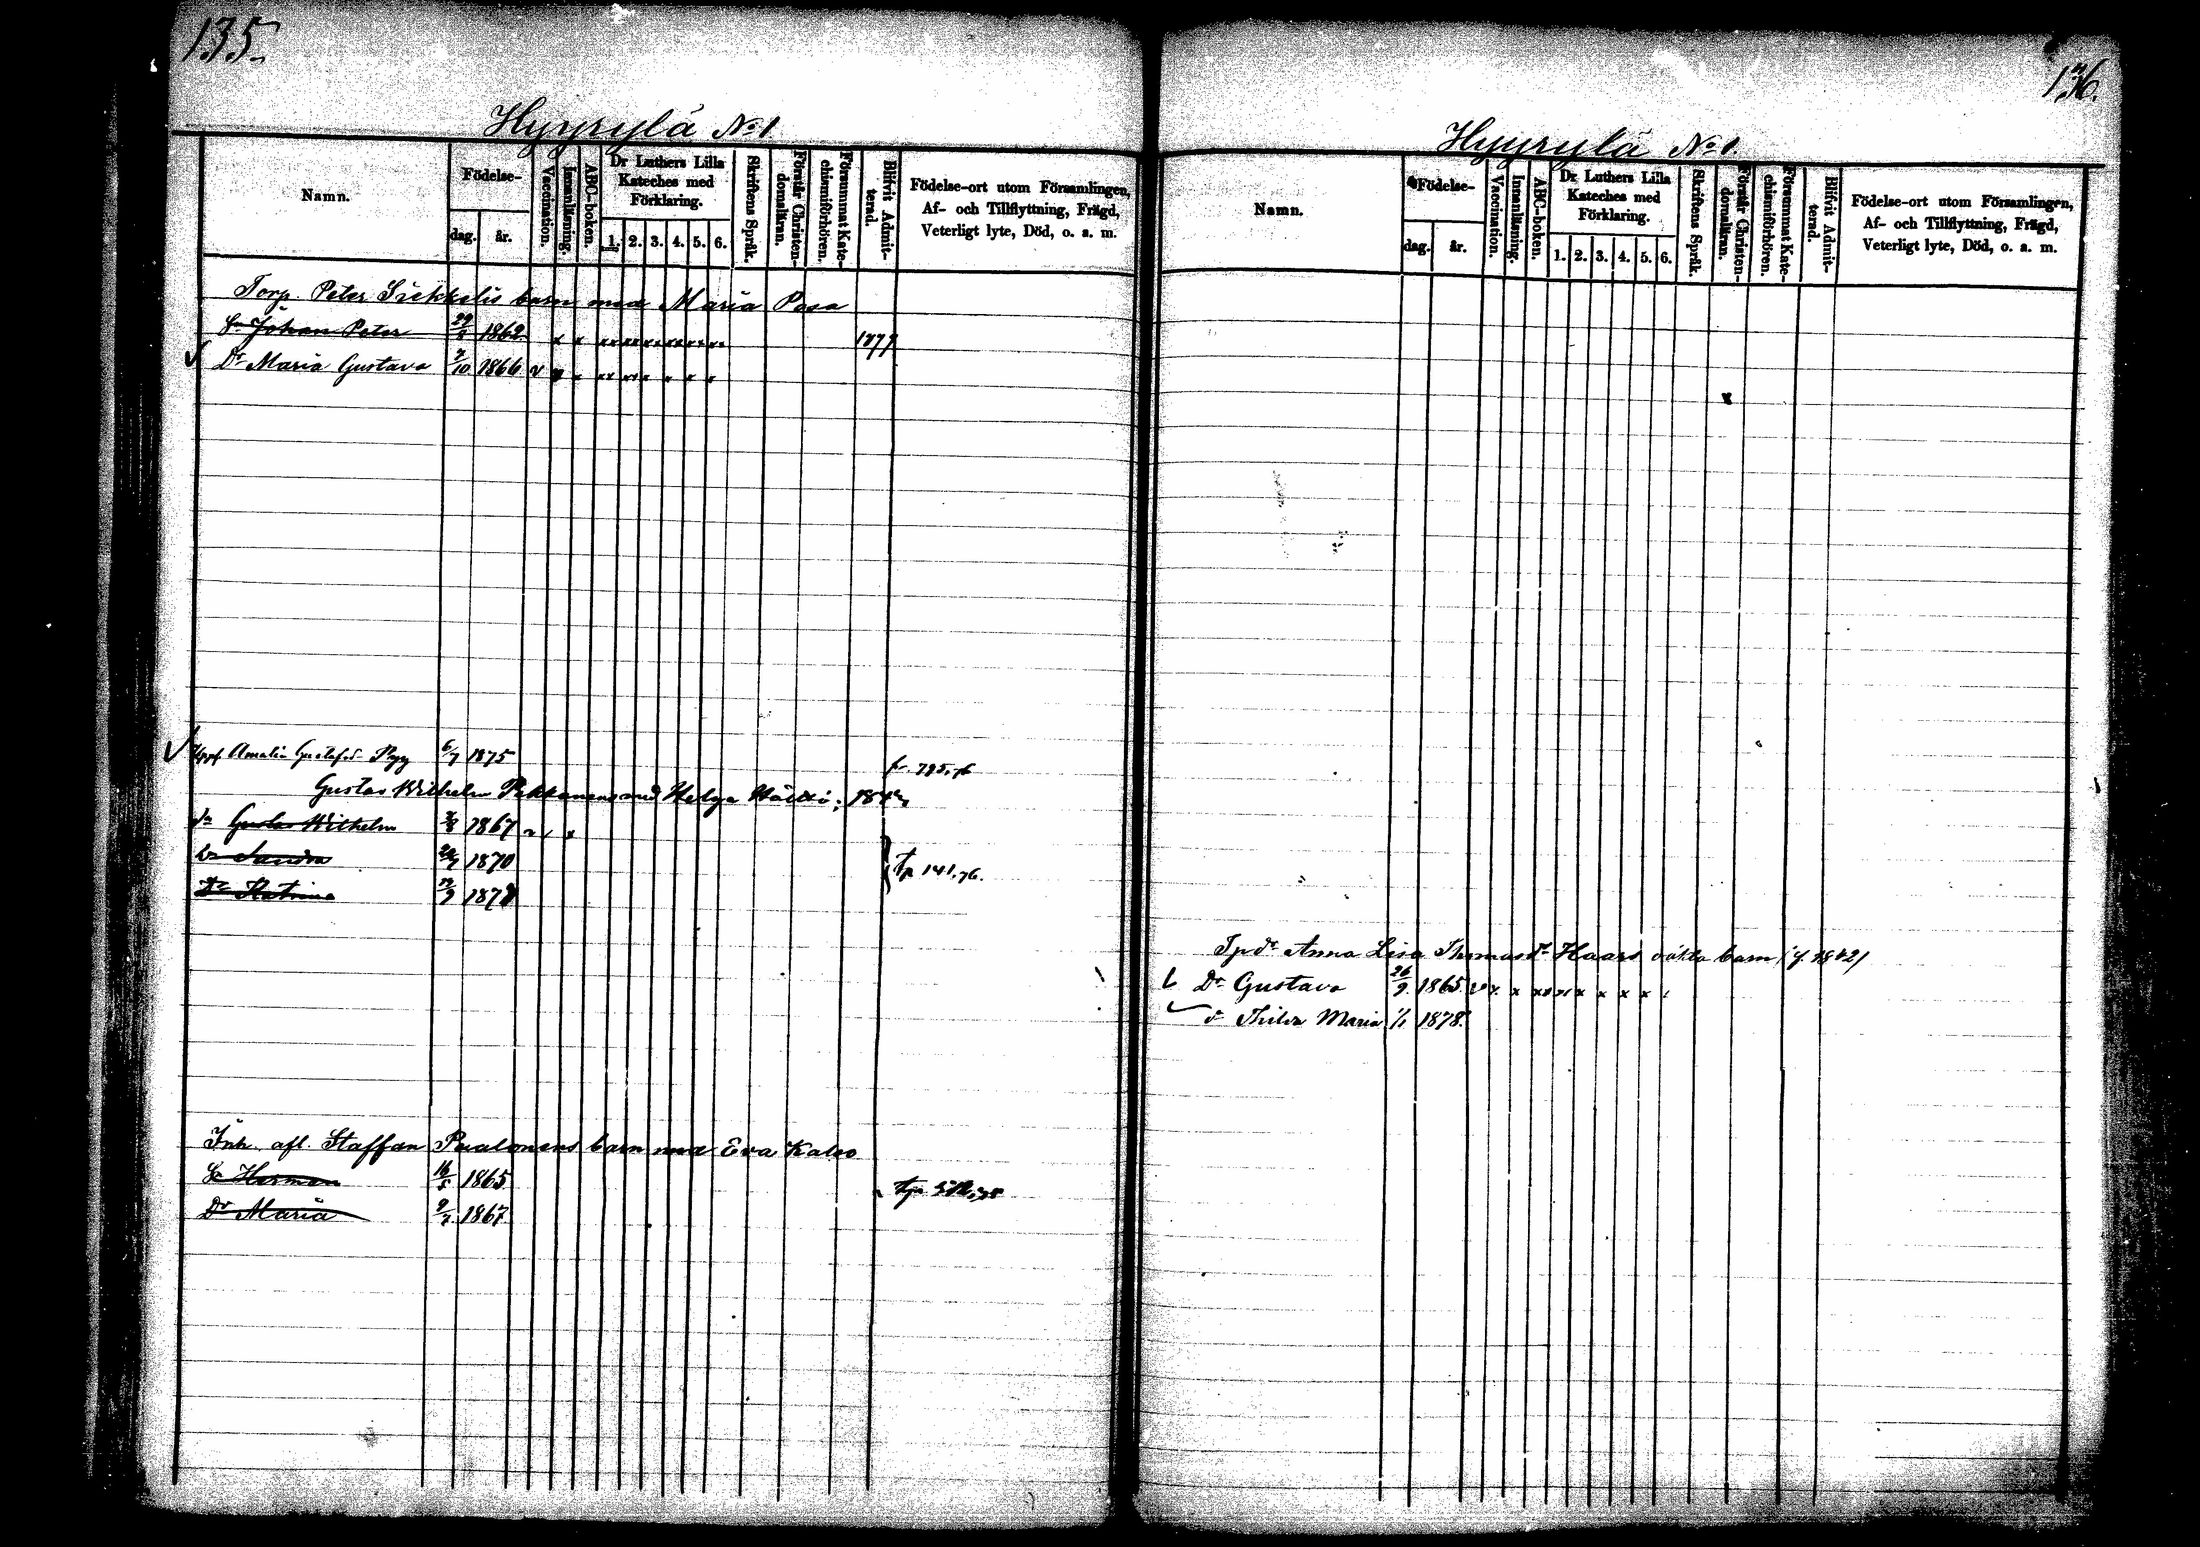 135.
Hyyrylä No 1.
Namn.
Födelse-
dag. år.
Vaccination.
Innanläsning.
ABC-boken.
Dr Luthers Lilla Kateches med Förklaring.
1. 2. 3. 4. 5. 6.
Skriftens Språk.
Förstår Christendomsläran.
Försummat Katechismiförhören.
Blifvit Admitterad.
Födelse-ort utom Församlingen, Af- och Tillflyttning, Frägd, Veterligt lyte, Död, o. a. m.
Torp. Peter Siekkelis barn med Maria Posa
Sn Johan Peter 29/8 1862 x x xx xx xx xx xx xx 1877
Dr Maria Gustava 9/10 1866 v x x xx xx x x x x
Amalia Gustafsd. 6/7 1875 fr. 795.76
Gustaf Wilhelm Pekkanens med Helga
Sn Gustaf Wilhelm 1867
Dr Sandra 1870
tp 141.76.
Dr Katrina
Inh. afl. Staffan Paalonens barn med Eva Kalso
Sn Herman 16/5 1865
Dr Maria 9/7 1867
136.
Hyyrylä No 1.
Namn.
Födelse-
dag. år.
Vaccination.
Innanläsning.
ABC-boken.
Dr Luthers Lilla Kateches med Förklaring.
1. 2. 3. 4. 5. 6.
Skriftens Språk.
Förstår Christendomsläran.
Försummat Katechismiförhören.
Blifvit Admitterad.
Födelse-ort utom Församlingen, Af- och Tillflyttning, Frägd, Veterligt lyte, Död, o. a. m.
x
Tpdr Anna Lisa Thomasdr Haars oäkta barn (f. 1842)
Dr Gustava 26/9 1865. v x x xx xx x x x x
d Hilda Maria 1/1 1878.